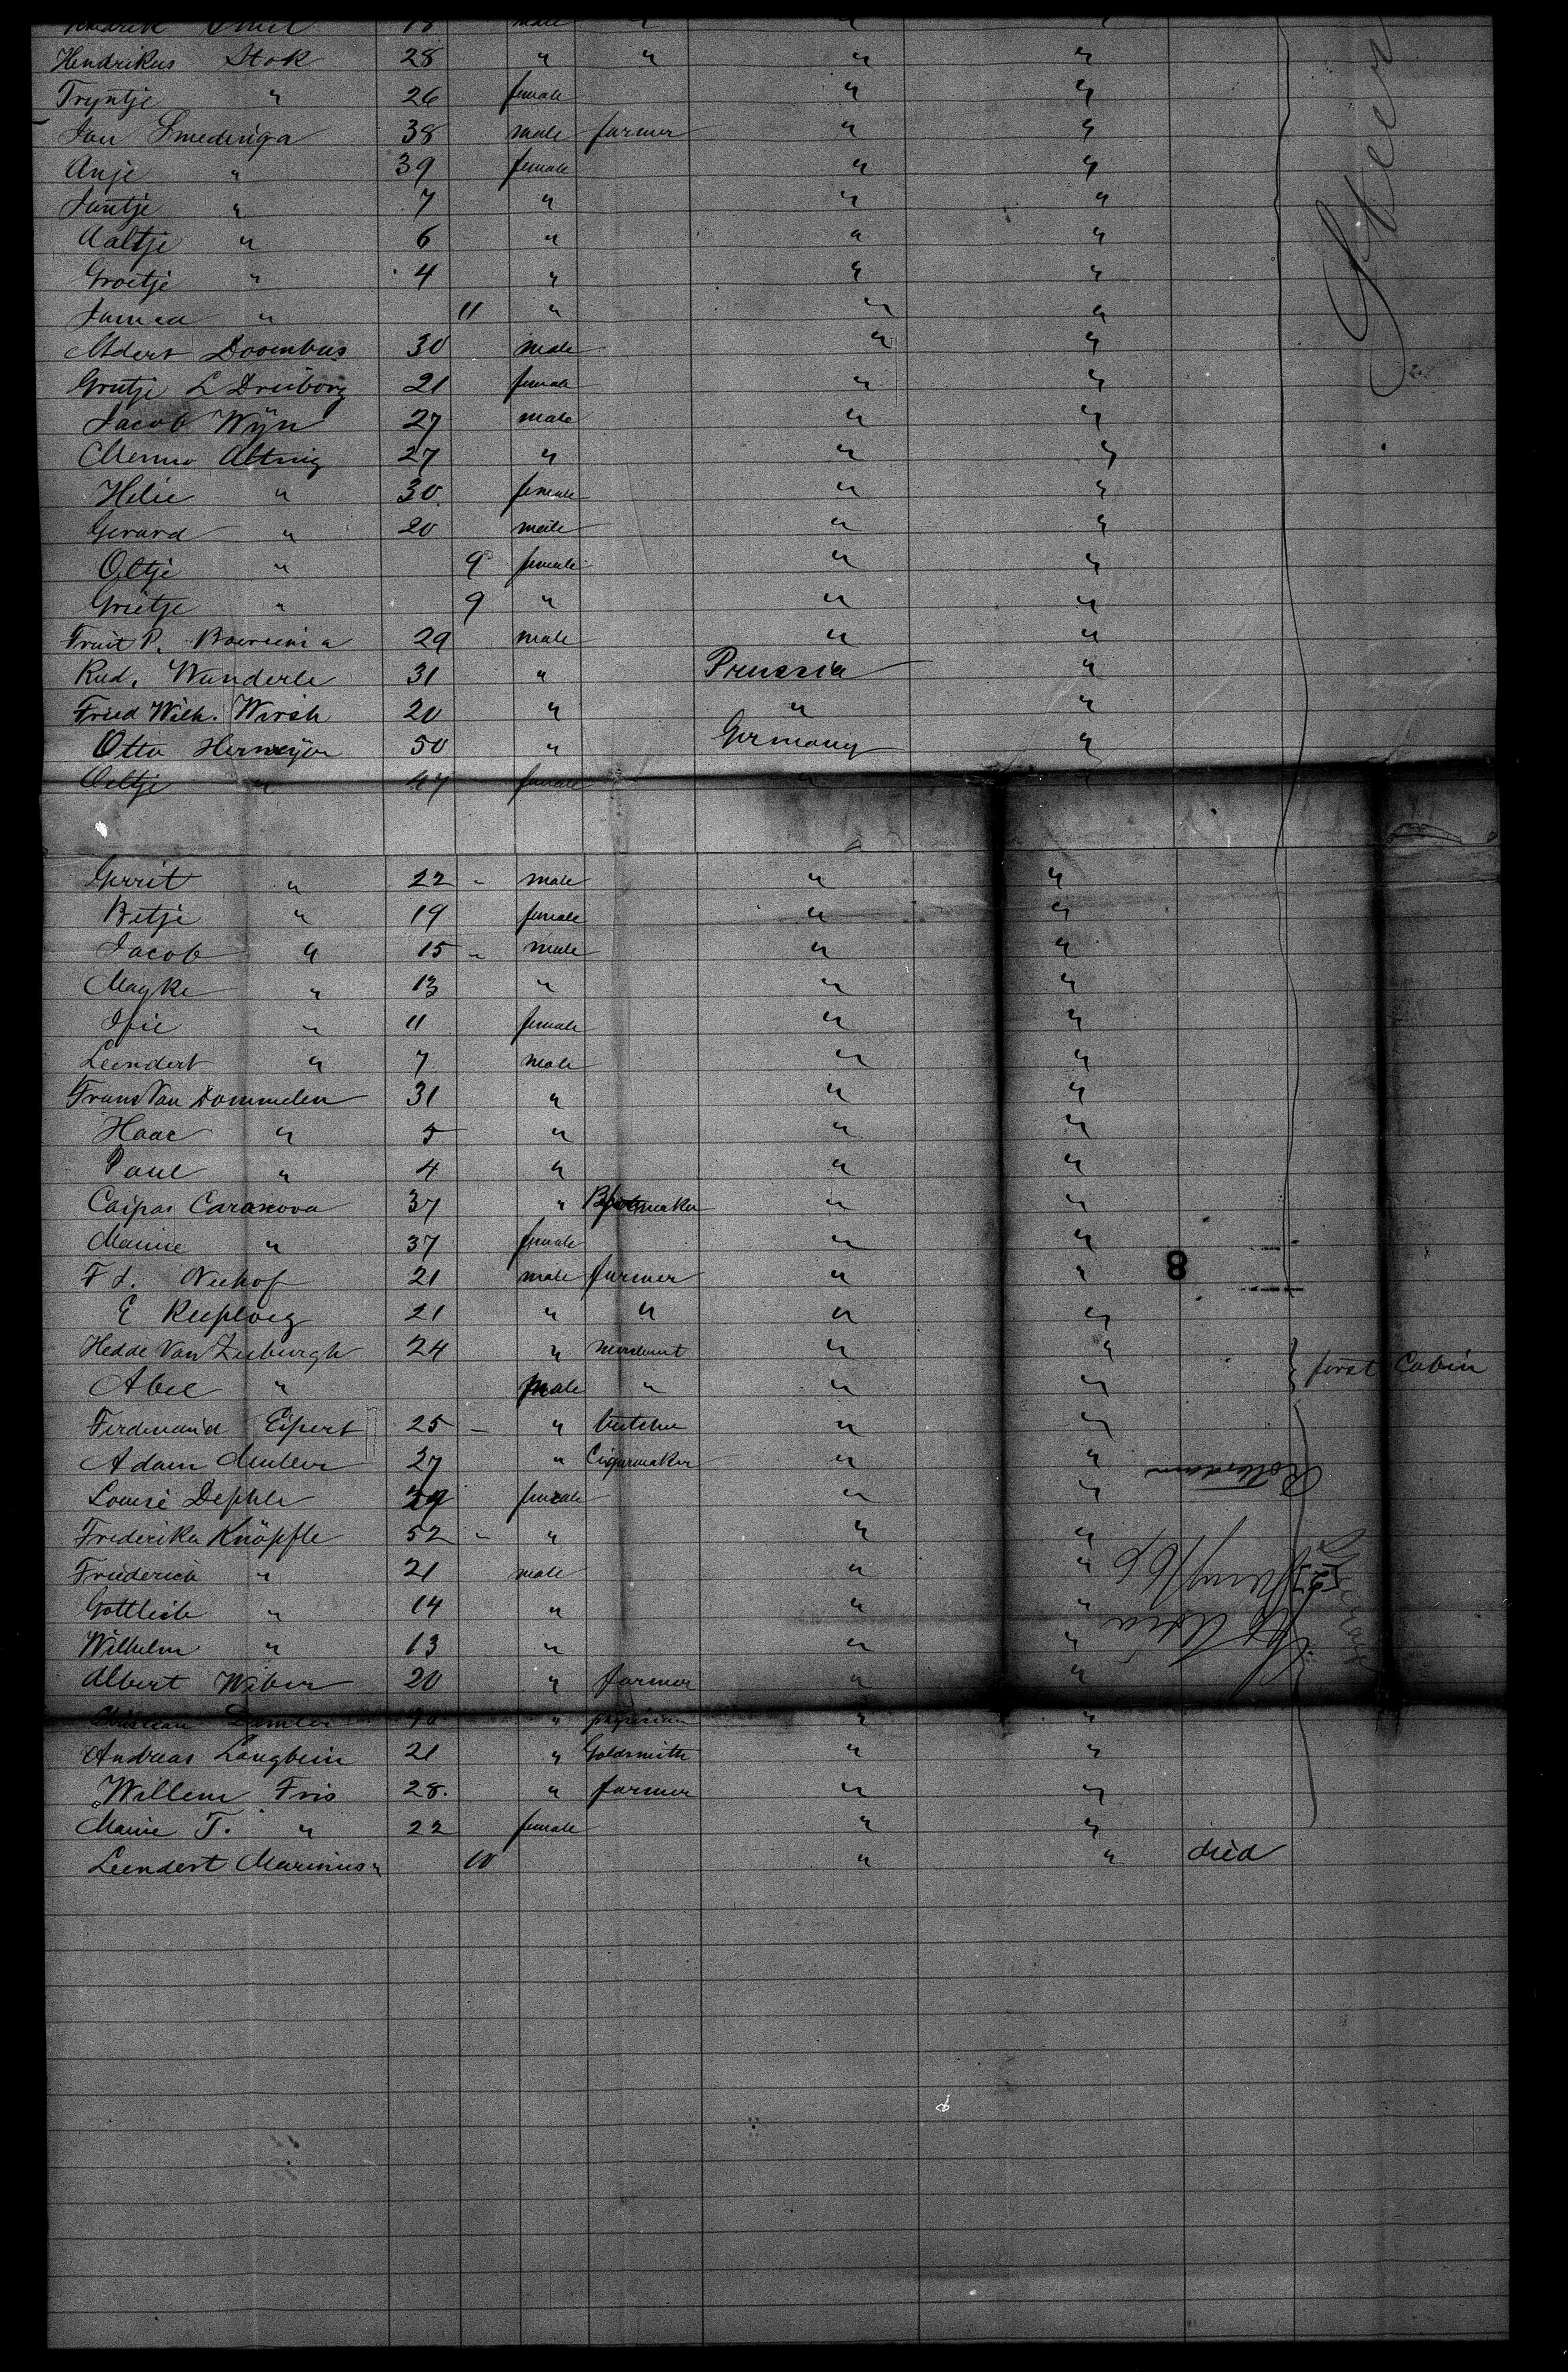 Hendrikus Stok 28 " " " "
Tryntje " 26 female " "
Jan Smedinga 38 male farmer " "
Anje " 39 female " "
Jantje " 7 " " "
Aaltje " 6 " " "
Groetje " 4 " " "
" 11 " " "
Doornbus 30 male " "
Grutje L Dreiborg 21 female " "
Jacob Wÿn 27 male " "
Menno Alting 27 " " "
Helie " 30 female " "
Gerard " 20 male " "
Oltje " 9 female " "
Grietje " 9 " " "
P. Boersema 29 male " "
Rud. Wunderle 31 " Prussia "
Fried Wilh. Wirsh 20 " " "
Otto Hermeyer 50 " Germany "
Oeltje " 47 female " "
Gerrit " 22 - male " "
Betje " 19 female " "
Jacob " 15 - male " "
Mayke " 13 " " "
" 11 female " "
Leendert " 7 male " "
Frans Van Dommelen 31 " " "
" 5 " " "
Paul " 4 " " "
Caspar Caranova 37 " " "
" 37 female " "
F L. Niehof 21 male farmer " "
E 21 " " " "
Hedde Van Zeeburgh 24 " merchant " "
Abel " male " " " first Cabin
Ferdinand Eipert 25 - " butcher " "
Adam Muller 27 " Cigarmaker " " Rotterdam
Louise 39 female " "
Frederika Knöpfle 52 - " " "
Friederich " 21 male " "
Gottlieb " 14 " " "
Wilhelm " 13 " " "
Albert Weber 20 " farmer " "
Christian " physician " "
Andreas Langbein 21 " Goldsmith " "
Willem Fris 28. " farmer " "
T. " 22 female " "
Leendert Marinus " 10 " " died
8